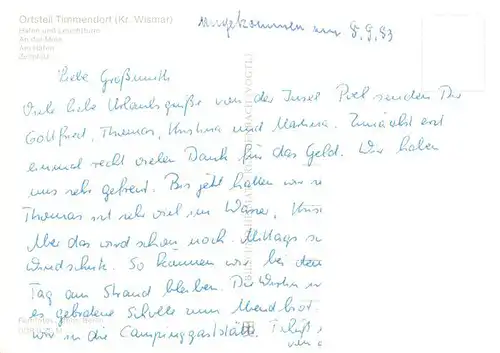 Ortsteil Timmendorf (Kr. Wismar)
Hafen und Leuchtturm
An der Mole
Am Hafen
Zeltplatz
angekommen am 8.9.83
Liebe Großmutti
Viele liebe Urlaubsgrüße von der Insel Poel senden Dir
Gottfried, Thomas, Kristina und Martina. Zunächst erst
einmal recht vielen Dank für das Geld. Wir haben
uns sehr gefreut. Bis jetzt hatten wir
Thomas ist sehr viel im Wasser,
Aber das wird schon noch. Mittags
Windschutz. So können wir bei dem
Tag am Strand bleiben.
es gebratene Scholle zum Abendbrot.
wir in die Campinggaststätte.